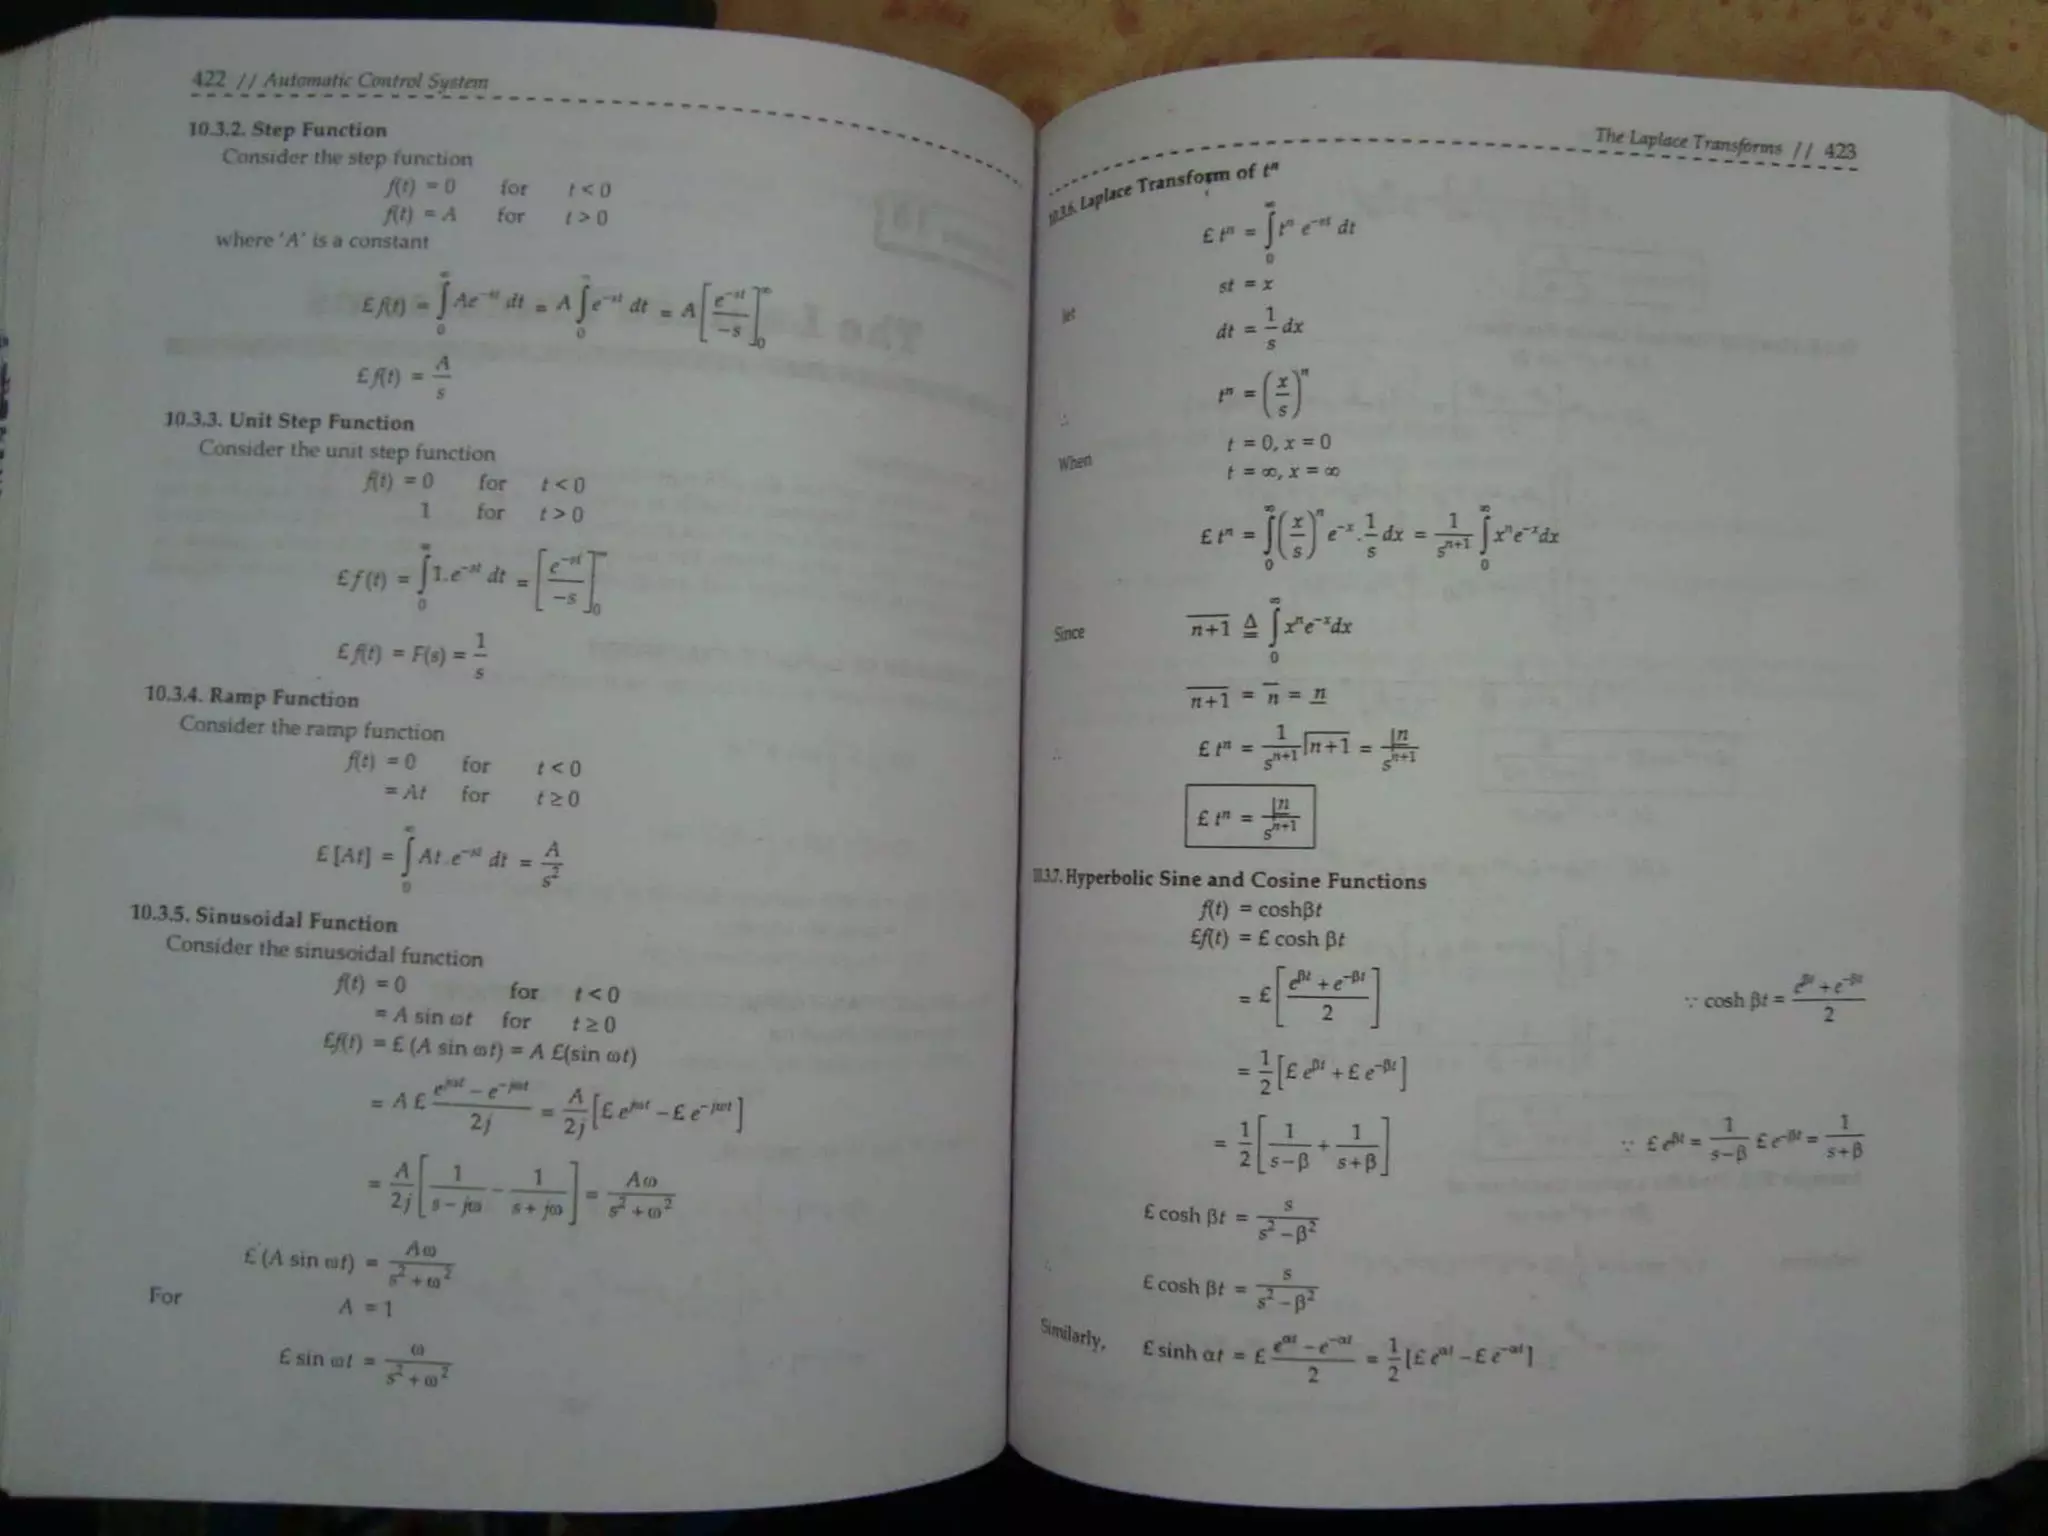 422 // Automatic Control System
10.3.2. Step Function
Consider the step function
f(t) = 0 for t < 0
f(t) = A for t > 0
where 'A' is a constant
£ f(t) = ∫₀^∞ Ae^(−st) dt = A ∫₀^∞ e^(−st) dt = A [e^(−st)/−s]₀^∞
£ f(t) = A/s
10.3.3. Unit Step Function
Consider the unit step function
f(t) = 0 for t < 0
1 for t > 0
£ f(t) = ∫₀^∞ 1.e^(−st) dt = [e^(−st)/−s]₀^∞
£ f(t) = F(s) = 1/s
10.3.4. Ramp Function
Consider the ramp function
f(t) = 0 for t < 0
= At for t ≥ 0
£ [At] = ∫₀^∞ At.e^(−st) dt = A/s²
10.3.5. Sinusoidal Function
Consider the sinusoidal function
f(t) = 0 for t < 0
= A sin ωt for t ≥ 0
£f(t) = £ (A sin ωt) = A £(sin ωt)
= A £ (e^(jωt) − e^(−jωt))/2j = A/2j [£ e^(jωt) − £ e^(−jωt)]
= A/2j [1/(s − jω) − 1/(s + jω)] = Aω/(s² + ω²)
£ (A sin ωt) = Aω/(s² + ω²)
For A = 1
£ sin ωt = ω/(s² + ω²)
The Laplace Transforms // 423
10.3.6. Laplace Transform of tⁿ
£ tⁿ = ∫₀^∞ tⁿ e^(−st) dt
let st = x
dt = 1/s dx
∴ tⁿ = (x/s)ⁿ
When t = 0, x = 0
t = ∞, x = ∞
£ tⁿ = ∫₀^∞ (x/s)ⁿ e^(−x) . 1/s dx = 1/s^(n+1) ∫₀^∞ xⁿe^(−x)dx
Since n+1‾ ≜ ∫₀^∞ xⁿe^(−x)dx
n+1‾ = n‾ = n̲
∴ £ tⁿ = 1/s^(n+1) |n+1‾ = |n̲/s^(n+1)
£ tⁿ = |n̲/s^(n+1)
10.3.7. Hyperbolic Sine and Cosine Functions
f(t) = coshβt
£f(t) = £ cosh βt
= £ [(e^(βt) + e^(−βt))/2] ∵ cosh βt = (e^(βt) + e^(−βt))/2
= 1/2 [£ e^(βt) + £ e^(−βt)]
= 1/2 [1/(s−β) + 1/(s+β)] ∵ £ e^(βt) = 1/(s−β) £ e^(−βt) = 1/(s+β)
£ cosh βt = s/(s² − β²)
∴ £ cosh βt = s/(s² − β²)
Similarly, £ sinh αt = £ (e^(αt) − e^(−αt))/2 = 1/2 [£ e^(αt) − £ e^(−αt)]